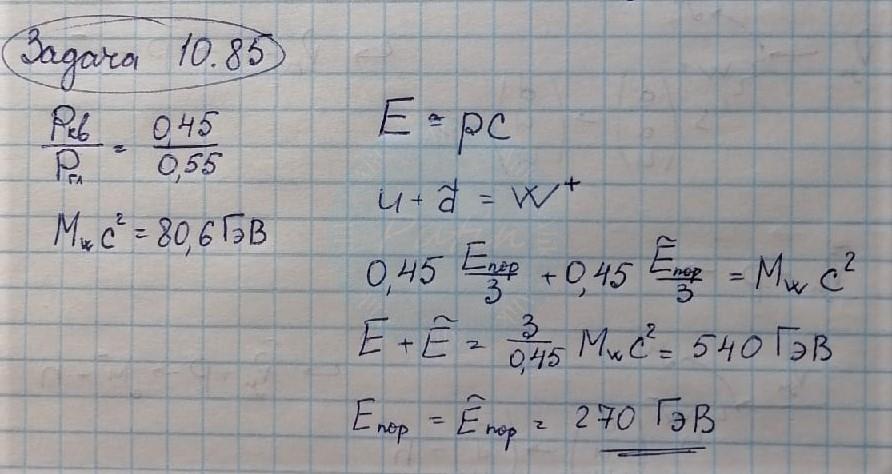 Задача 10.85
Pкв/Pгл = 0,45/0,55
Mw c² = 80,6 ГэВ
E = pc
u + d̃ = W⁺
0,45 Eпор/3 + 0,45 Ẽпор/3 = Mw c²
E + Ẽ = 3/0,45 Mw c² = 540 ГэВ
Eпор = Ẽпор = 270 ГэВ